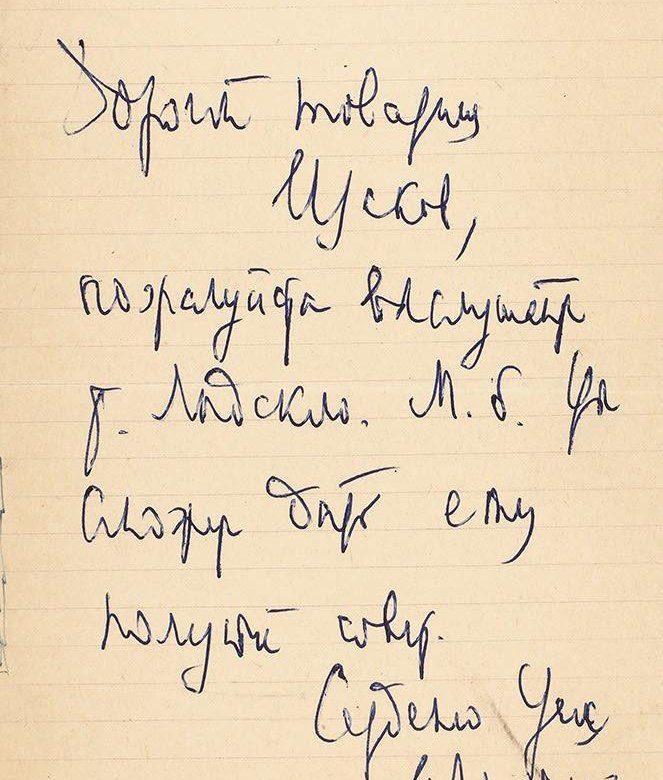 Дорогой товарищ
Усков,
пожалуйста выслушайте
т. Лидского. М. б. Вы
сможете дать ему
полезный совет.
Сердечно Ваш